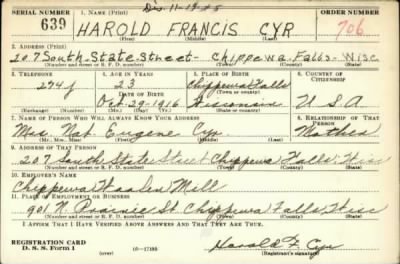 Dis. 11-19-45
SERIAL NUMBER 1. NAME (Print) ORDER NUMBER
639 HAROLD FRANCIS CYR 706
(First) (Middle) (Last)
2. ADDRESS (Print)
207 South State Street - Chippewa Falls - Wisc
(Number and street or R. F. D. number) (Town) (County) (State)
3. TELEPHONE 4. AGE IN YEARS 5. PLACE OF BIRTH 6. COUNTRY OF CITIZENSHIP
274J 23 Chippewa Falls
DATE OF BIRTH (Town or county)
Oct-29-1916 Wisconsin U.S.A.
(Exchange) (Number) (Mo.) (Day) (Yr.) (State or country)
7. NAME OF PERSON WHO WILL ALWAYS KNOW YOUR ADDRESS 8. RELATIONSHIP OF THAT PERSON
Mrs. Nat. Eugene Cyr Mother
(Mr., Mrs., Miss) (First) (Middle) (Last)
9. ADDRESS OF THAT PERSON
207 South State Street Chippewa Falls, Wisc
(Number and street or R. F. D. number) (Town) (County) (State)
10. EMPLOYER'S NAME
Chippewa Woolen Mill
11. PLACE OF EMPLOYMENT OR BUSINESS
901 N. Prairie St Chippewa Falls, Wisc
(Number and street or R. F. D. number) (Town) (County) (State)
I AFFIRM THAT I HAVE VERIFIED ABOVE ANSWERS AND THAT THEY ARE TRUE.
REGISTRATION CARD
D. S. S. Form 1 (over) Harold F. Cyr